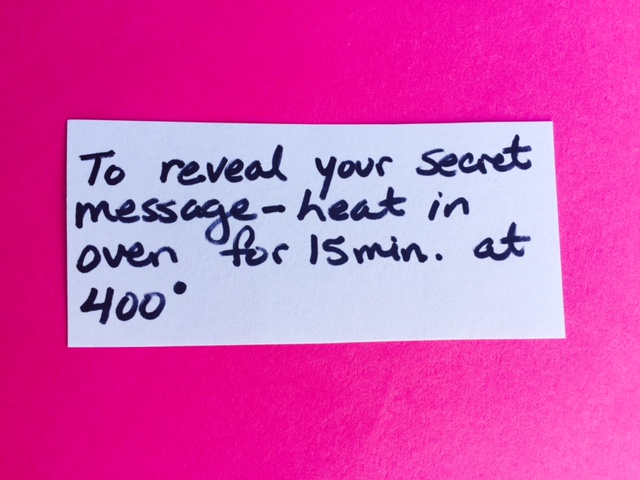 To reveal your secret
message - heat in
oven for 15 min. at
400°